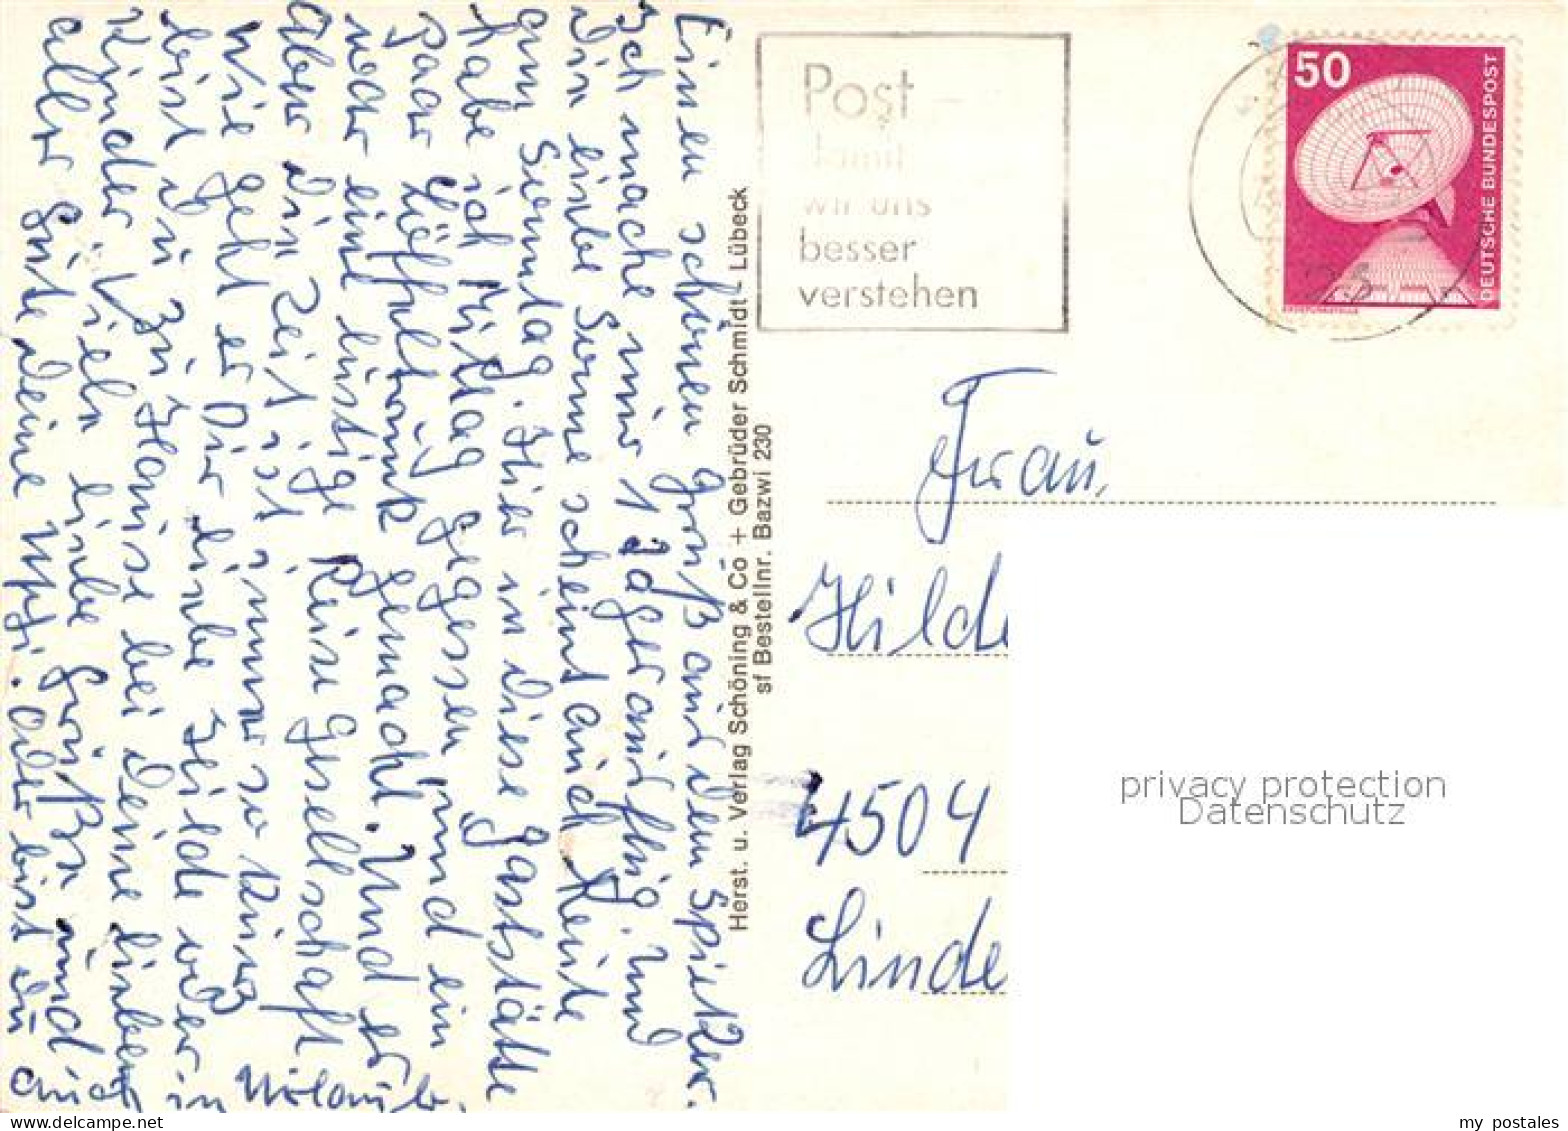 Einen schönen Gruß aus dem Spieker.
Ich mache mir 1 Jägerausflug. Und
die liebe Sonne scheint auch heute
am Sonntag. Hier in diese Gaststätte
habe ich Mittag gegessen und ein
paar Löffeltrünk gemacht. Und es
war eine lustige Reise Gesellschaft
Aber die Zeit ist immer so kurz
Wie geht es Dir liebe Hilde wieder
bist du zu Hause bei deine lieben
Kinder. Viele liebe Grüße und
alles Gute deine Mutti. Oder bist du
auch in Urlaub.
Herst. u. Verlag Schöning & Co + Gebrüder Schmidt - Lübeck
sf Bestellnr. Bazwi 230
Post -
damit
wir uns
besser
verstehen
50
DEUTSCHE BUNDESPOST
Frau
Hilde
4504
Linde
privacy protection
Datenschutz
my_postales
www.delcampe.net